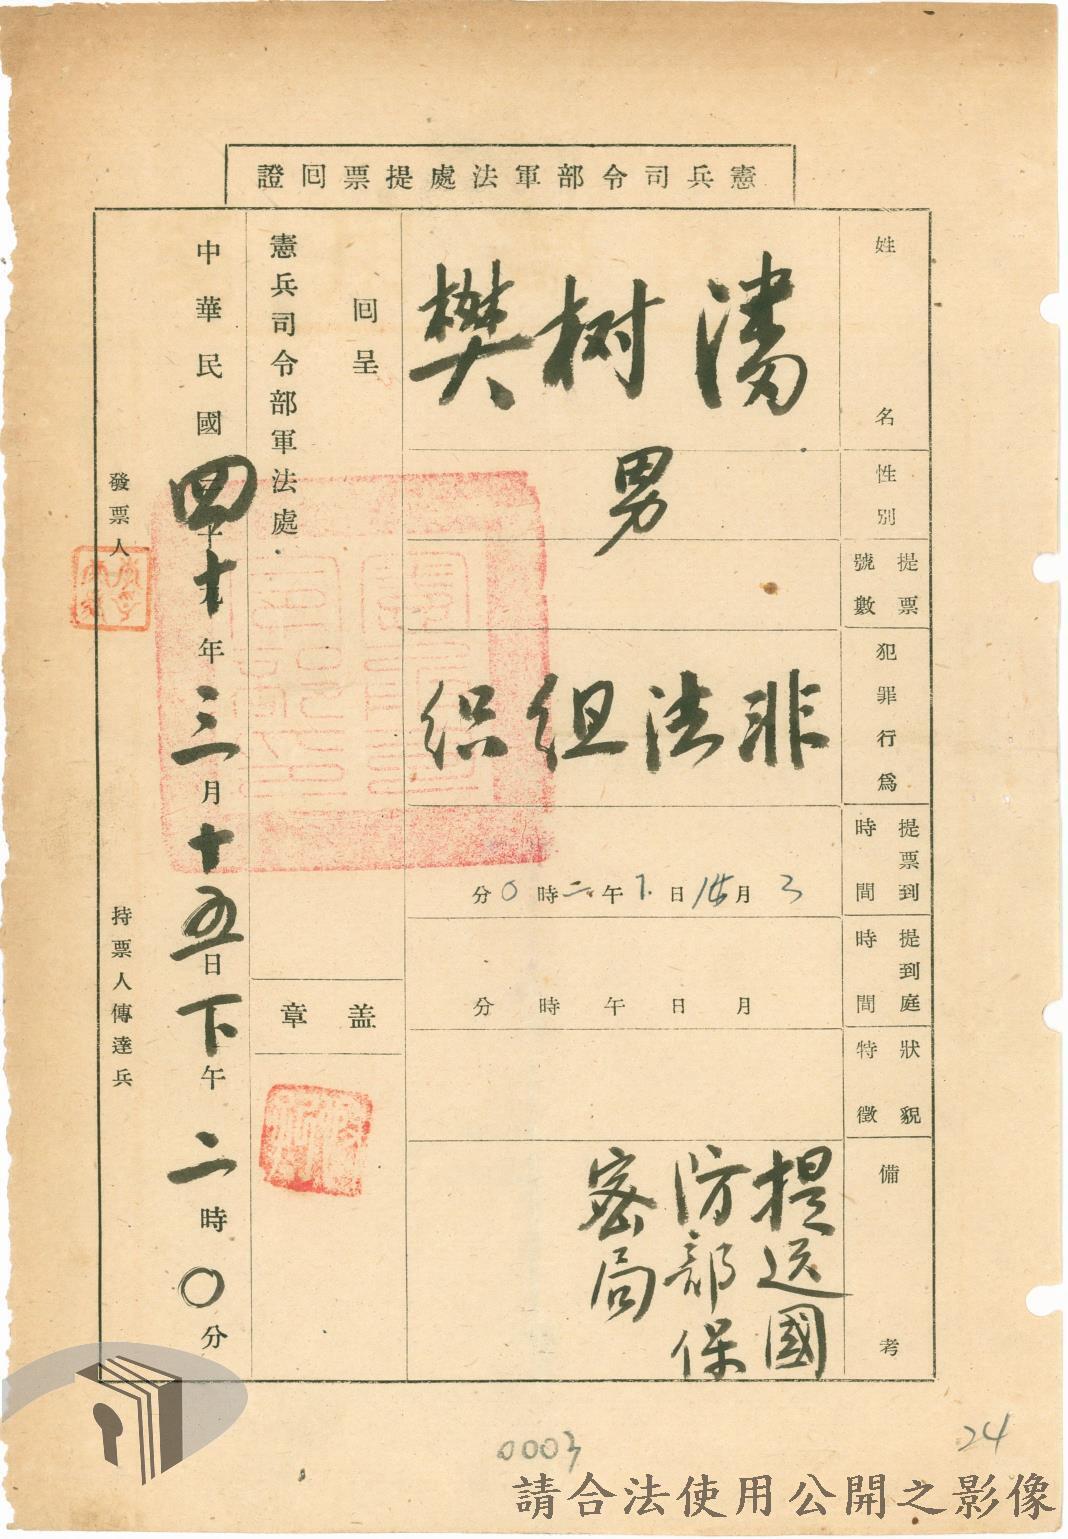 憲兵司令部軍法處提票囘證
姓名
潘树樊
性別
男
提票
號數
犯罪行為
非法组织
提票到
時間
3月15日下午二時0分
提到庭
時間
月日午時分
狀貌
特徵
備考
提送國
防部保
密局
囘呈
憲兵司令部軍法處
蓋章
中華民國四十年三月十五日下午二時〇分
發票人
持票人傳達兵
0003
24
請合法使用公開之影像